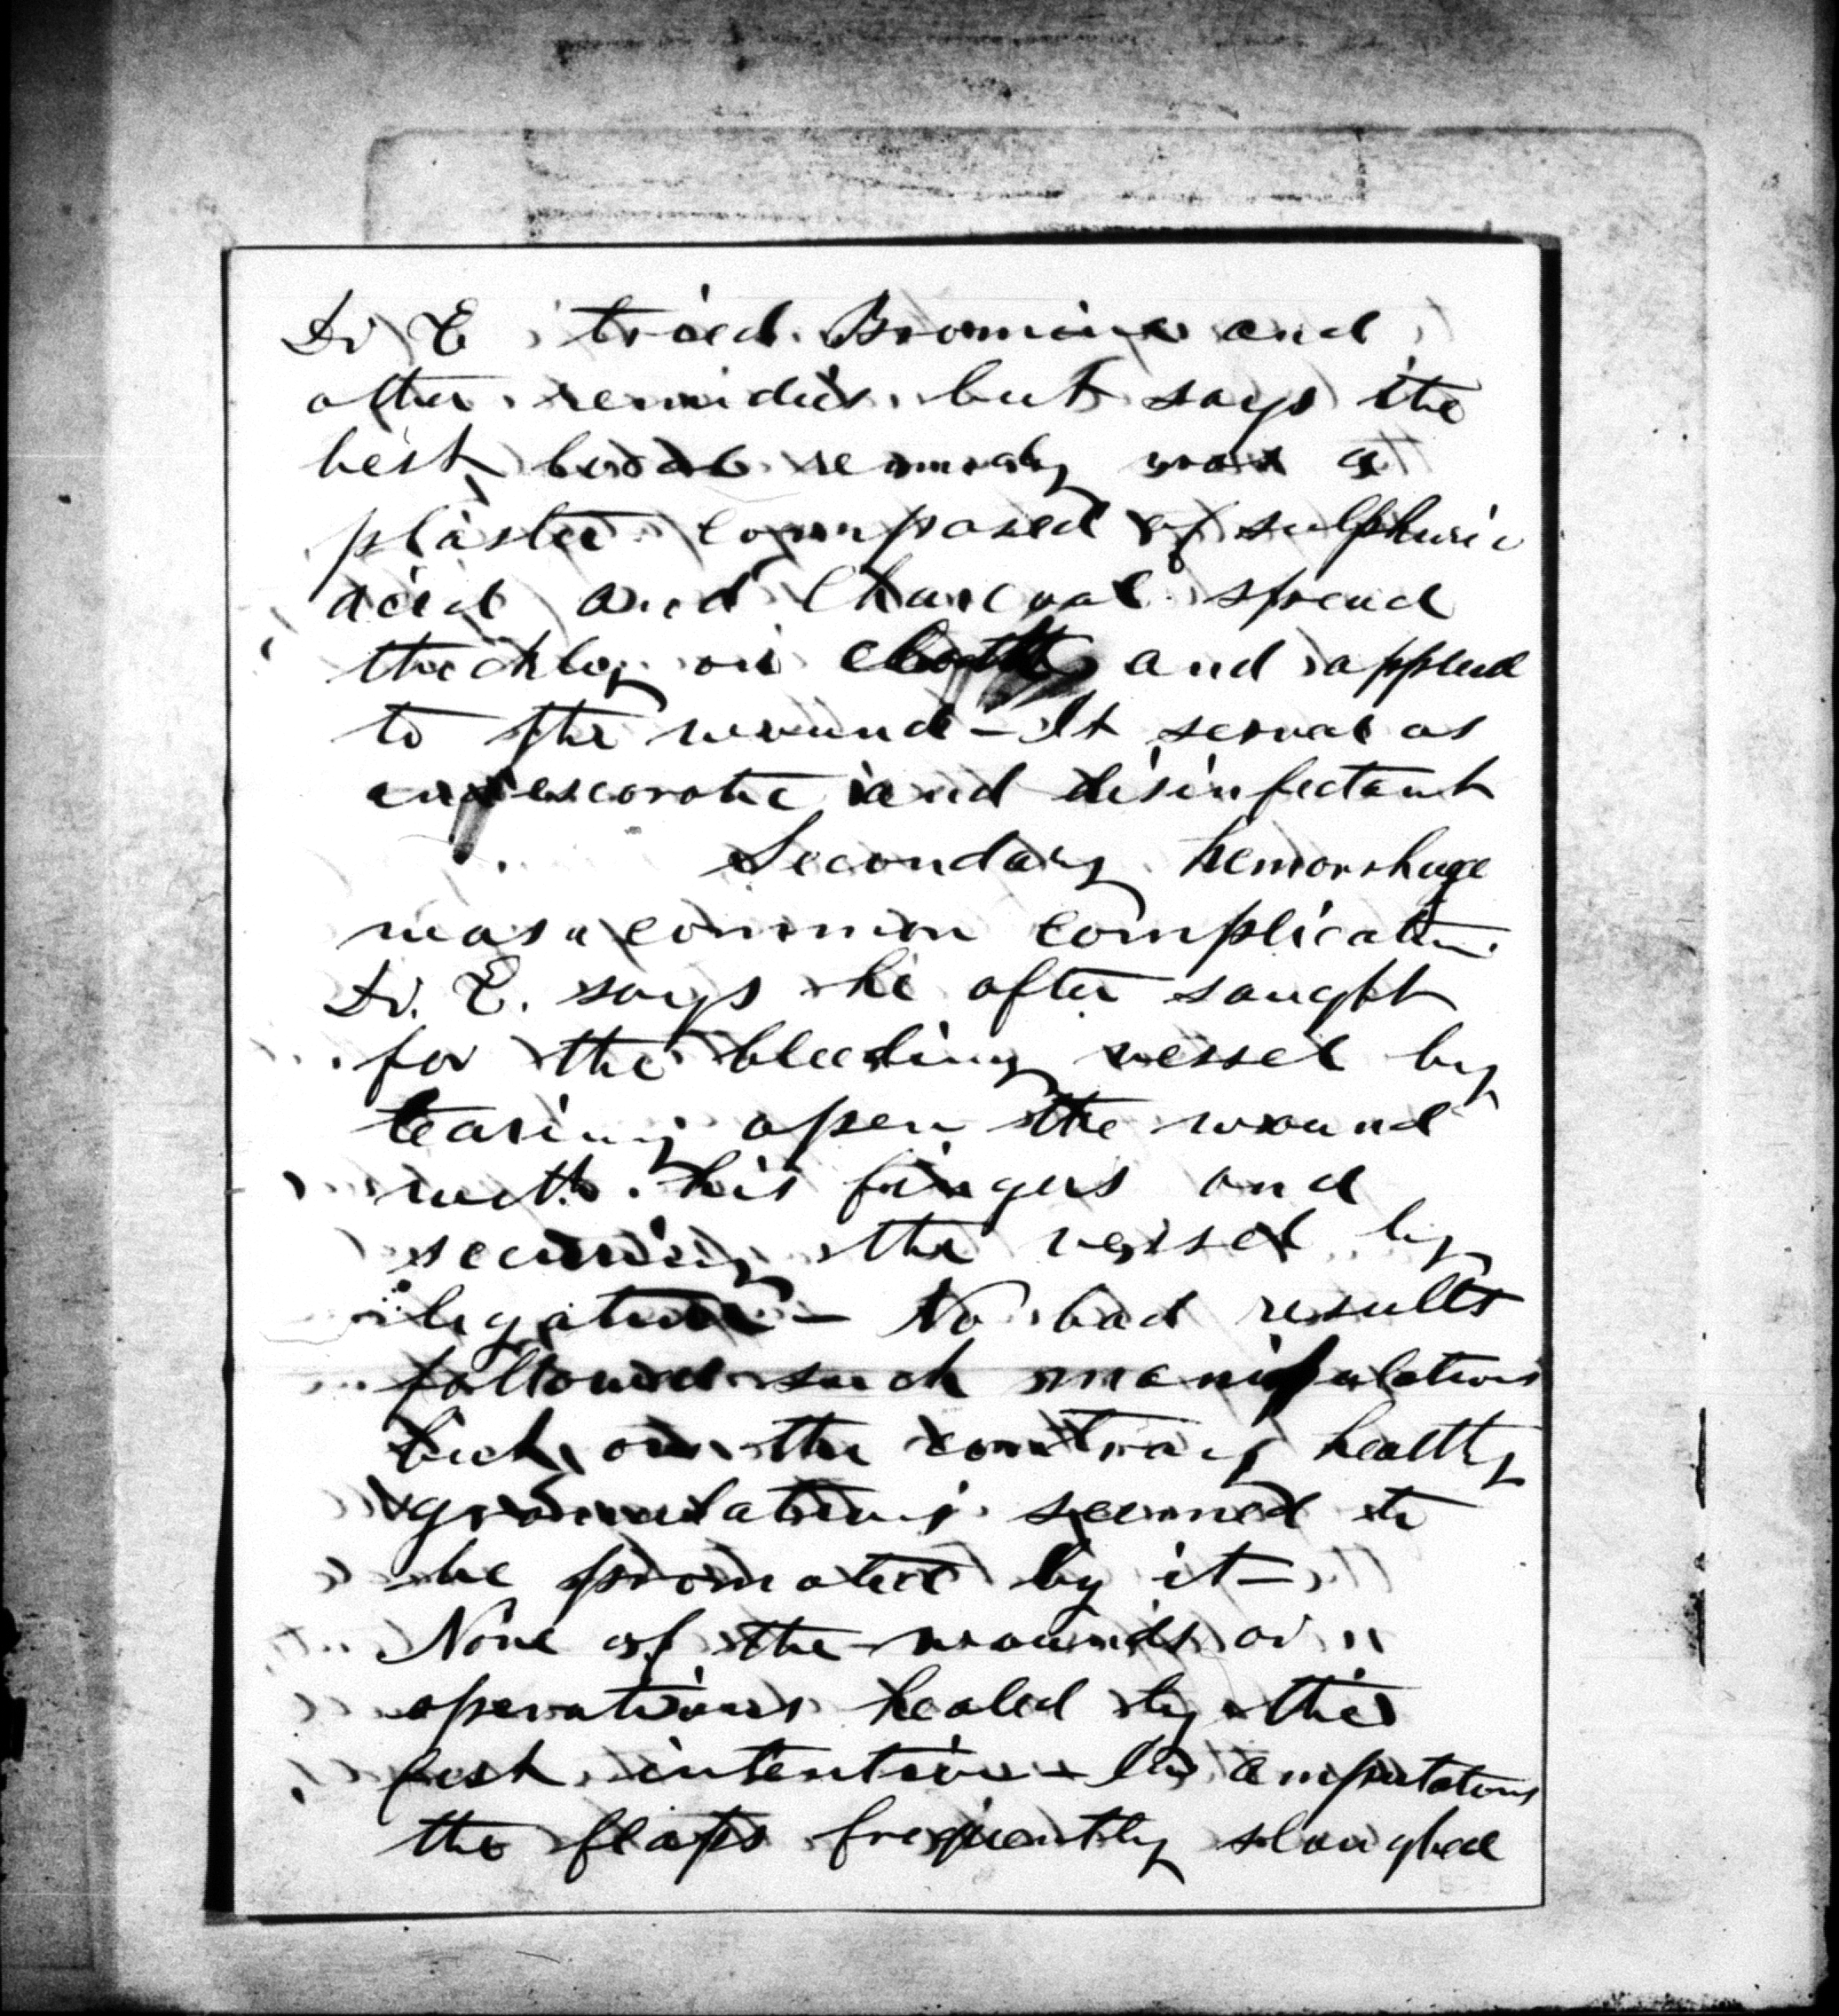 Dr E tried Bromine and
other remidies but says the
best local remedy was a
plaster composed of sulphuric
acid and Charcoal spread
thickly on cloth and applied
to the wound - It served as
an escarotic and disinfectant
Secondary hemorrhage
was a common complication.
Dr. E. says he often sought
for the bleeding vessel by
tearing open the wound
with his fingers and
securing the vessel by
ligature - No bad results
followed such manipulations
but on the contrary healthy
granulations seemed to
be promoted by it -
None of the wounds or
operations healed by the
first intention - In amputations
the flaps frequently sloughed